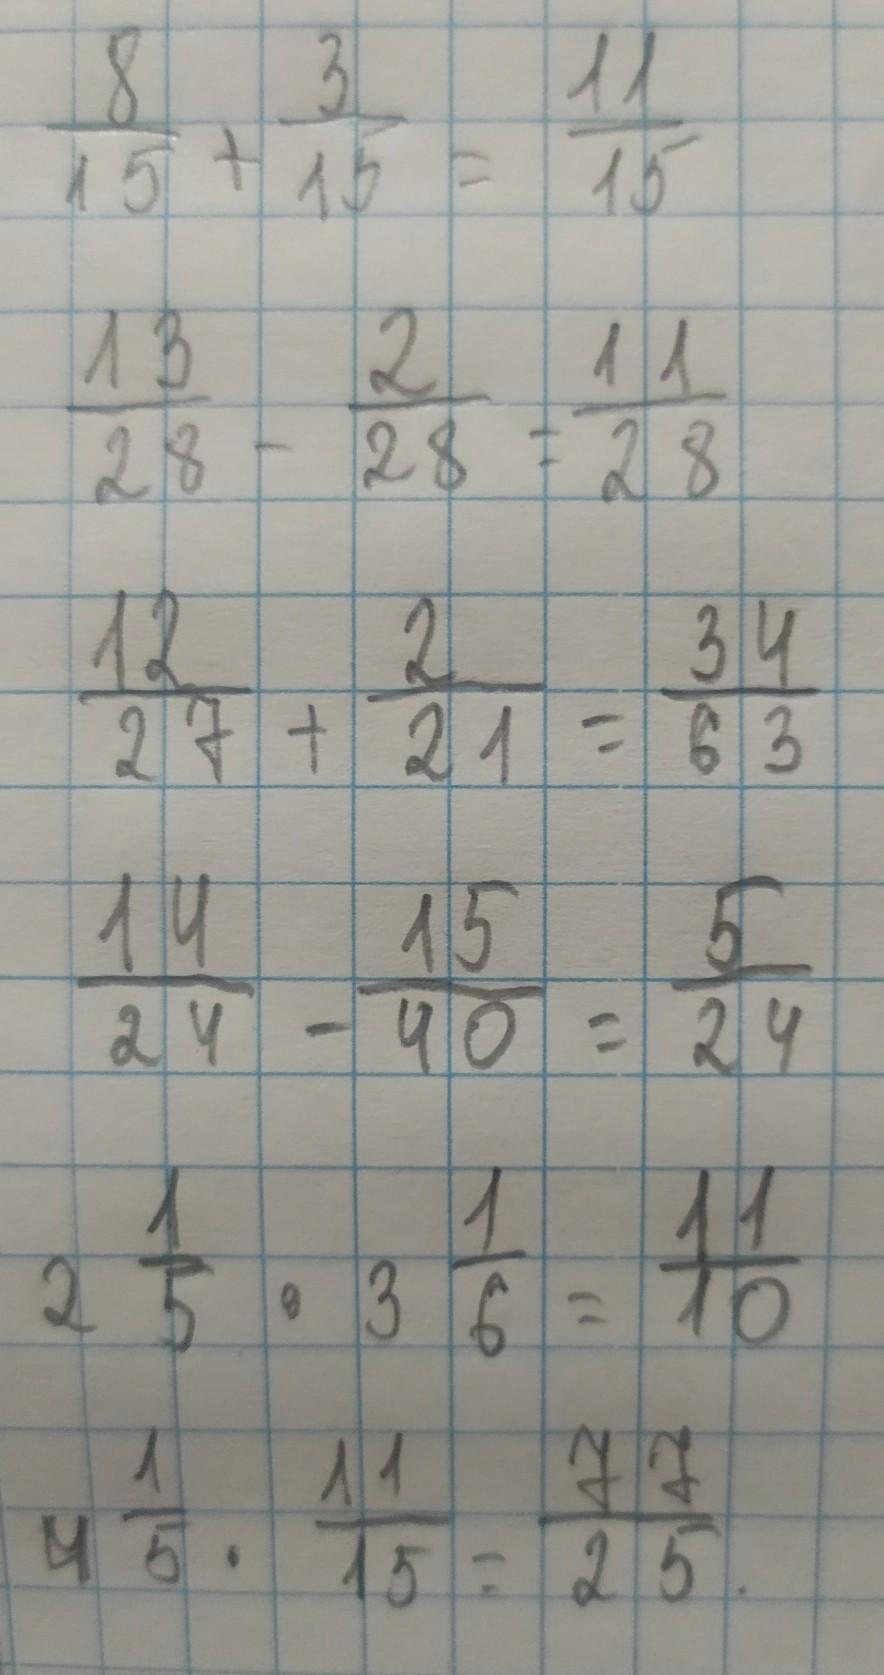 8/15 + 3/15 = 11/15
13/28 - 2/28 = 11/28
12/27 + 2/21 = 34/63
14/24 - 15/40 = 5/24
2 1/5 · 3 1/6 = 11/10
4 1/5 · 11/15 = 77/25.